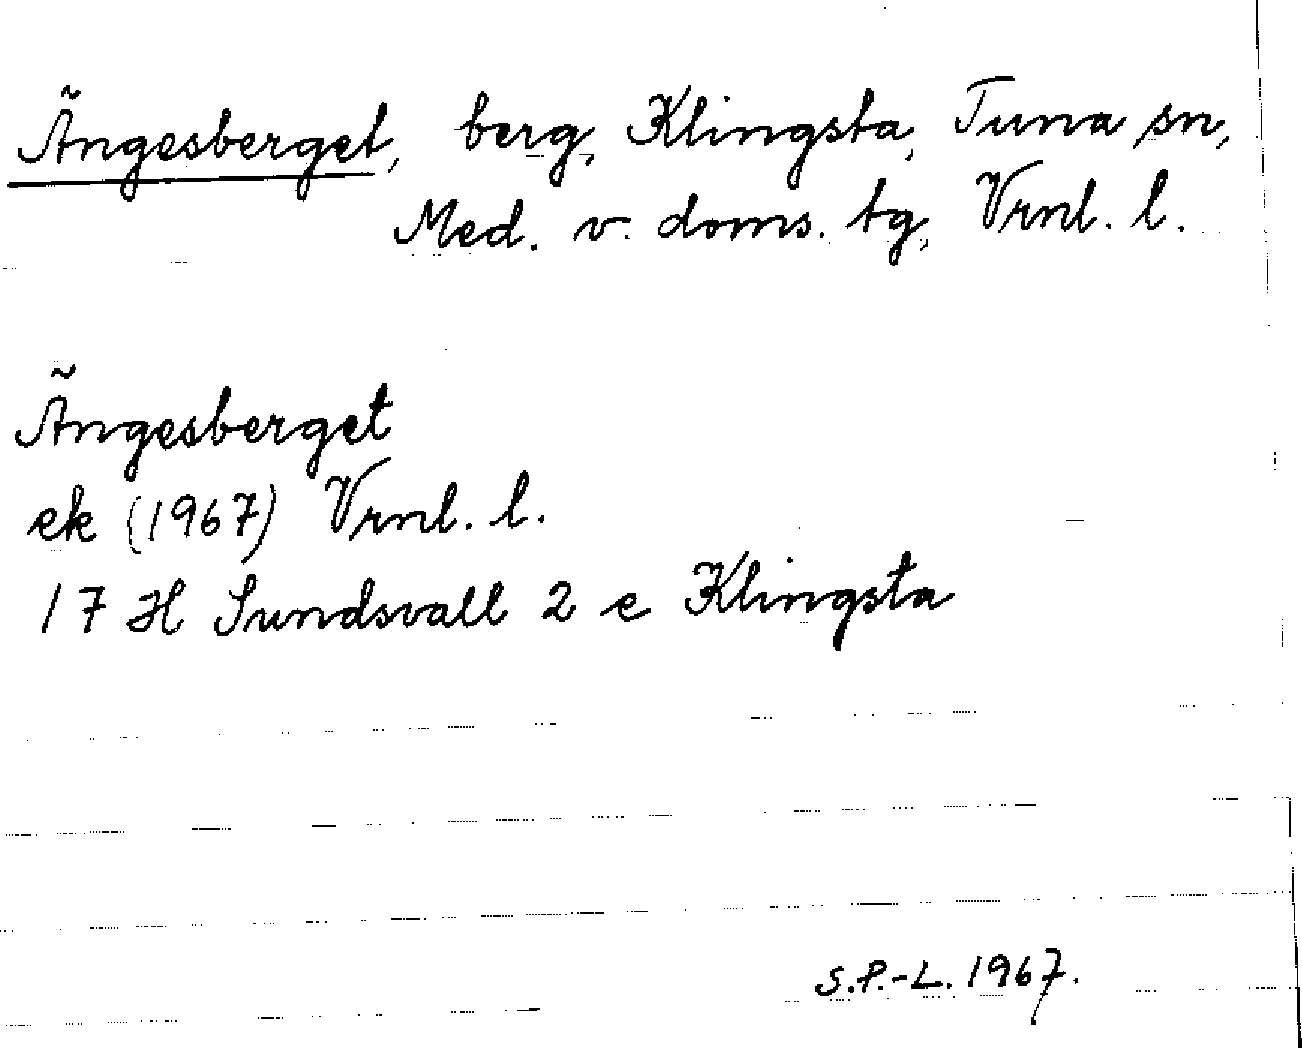 Ängesberget, berg, Klingsta, Tuna sn,
Med. v. doms. tg, Vrnl. l.
Ängesberget
ek (1967) Vrnl. l.
17 H Sundsvall 2 e Klingsta
S.P.-L. 1967.